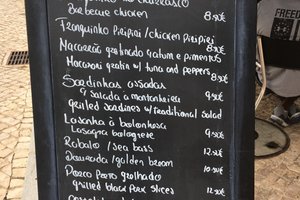 Barbecue chicken 8.90€
Franguinho Piripiri / chicken Piripiri
Macarrão gratinado c/atum e pimentos 8.90€
Macaroni gratin w/ tuna and peppers 8.90€
Sardinhas assadas
c/ salada à montanheira 9.50€
Grilled sardines w/ traditional salad
Lasanha à bolonhesa
Lasagna bolognese 9.50€
Robalo / sea bass 12.50€
Dourada / golden bream 10.90€
Porco preto grelhado
grilled black pork slices 12.50€
FREED